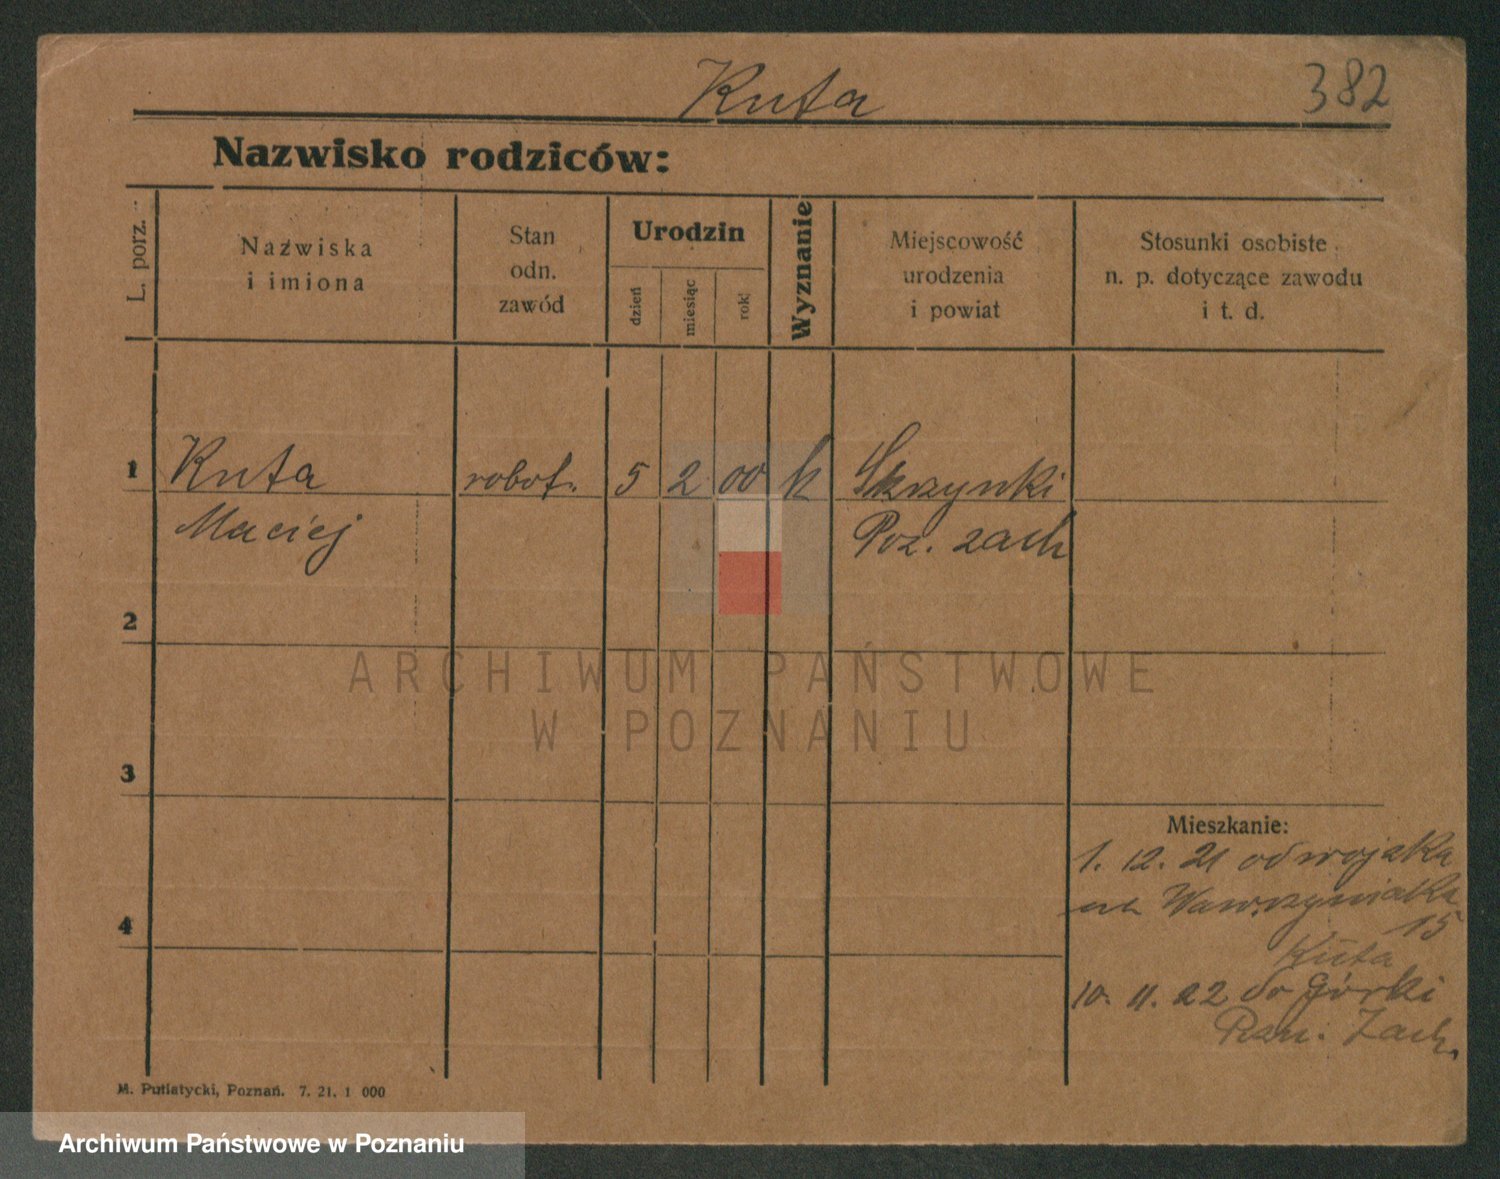 Kuta 382
Nazwisko rodziców:
L. porz.
Nazwiska
i imiona
Stan
odn.
zawód
Urodzin
dzień
miesiąc
rok
Wyznanie
Miejscowość
urodzenia
i powiat
Stosunki osobiste
n. p. dotyczące zawodu
i t. d.
1 Kuta robot. 5 2 00 k Skrzynki
Maciej Poz. zach
2
ARCHIWUM PAŃSTWOWE
W POZNANIU
3
Mieszkanie:
1. 12. 21 od wojska
Wawrzyniaka
4
15
Kuta
10. 11. 22 do Górki
Pzn. Zach.
M. Putiatycki, Poznań. 7. 21. 1 000
Archiwum Państwowe w Poznaniu